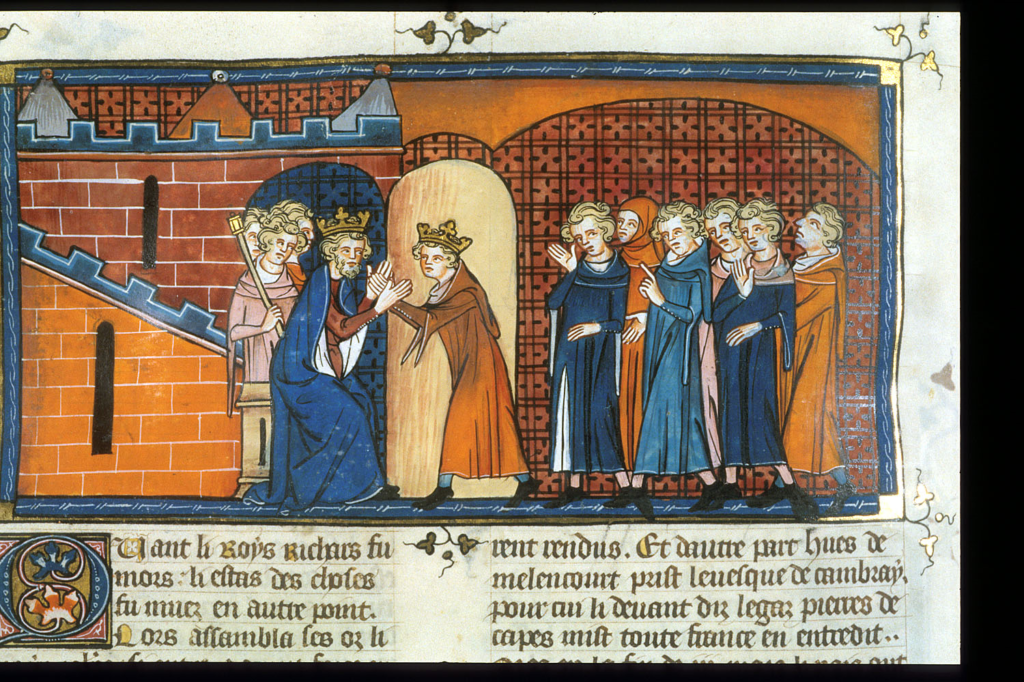 Quant li roys Richars fu
mors: li estas des choses
fu muez en autre point.
Lors assambla ses oz li
rent rendus. Et dautre part hues de
melencourt prist levesque de cambray.
pour cui li devant diz legaz pierres de
capes mist toute france en entredit..